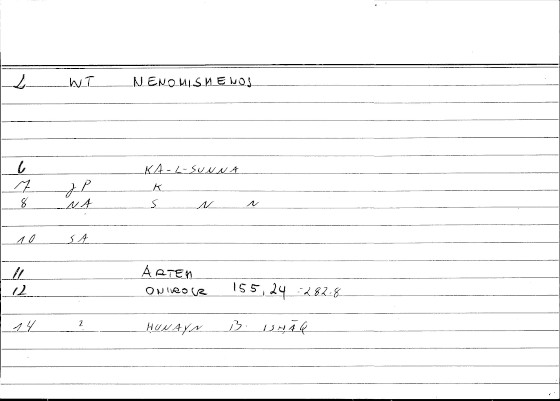 L WT NENOMISMENOS
6 KA-L-SUNNA
7 JP K
8 NA S N N
10 SA
11 ARTEM
12 ONIROCR 155,24 =282.8
14 2 HUNAYN B. ISḤĀQ